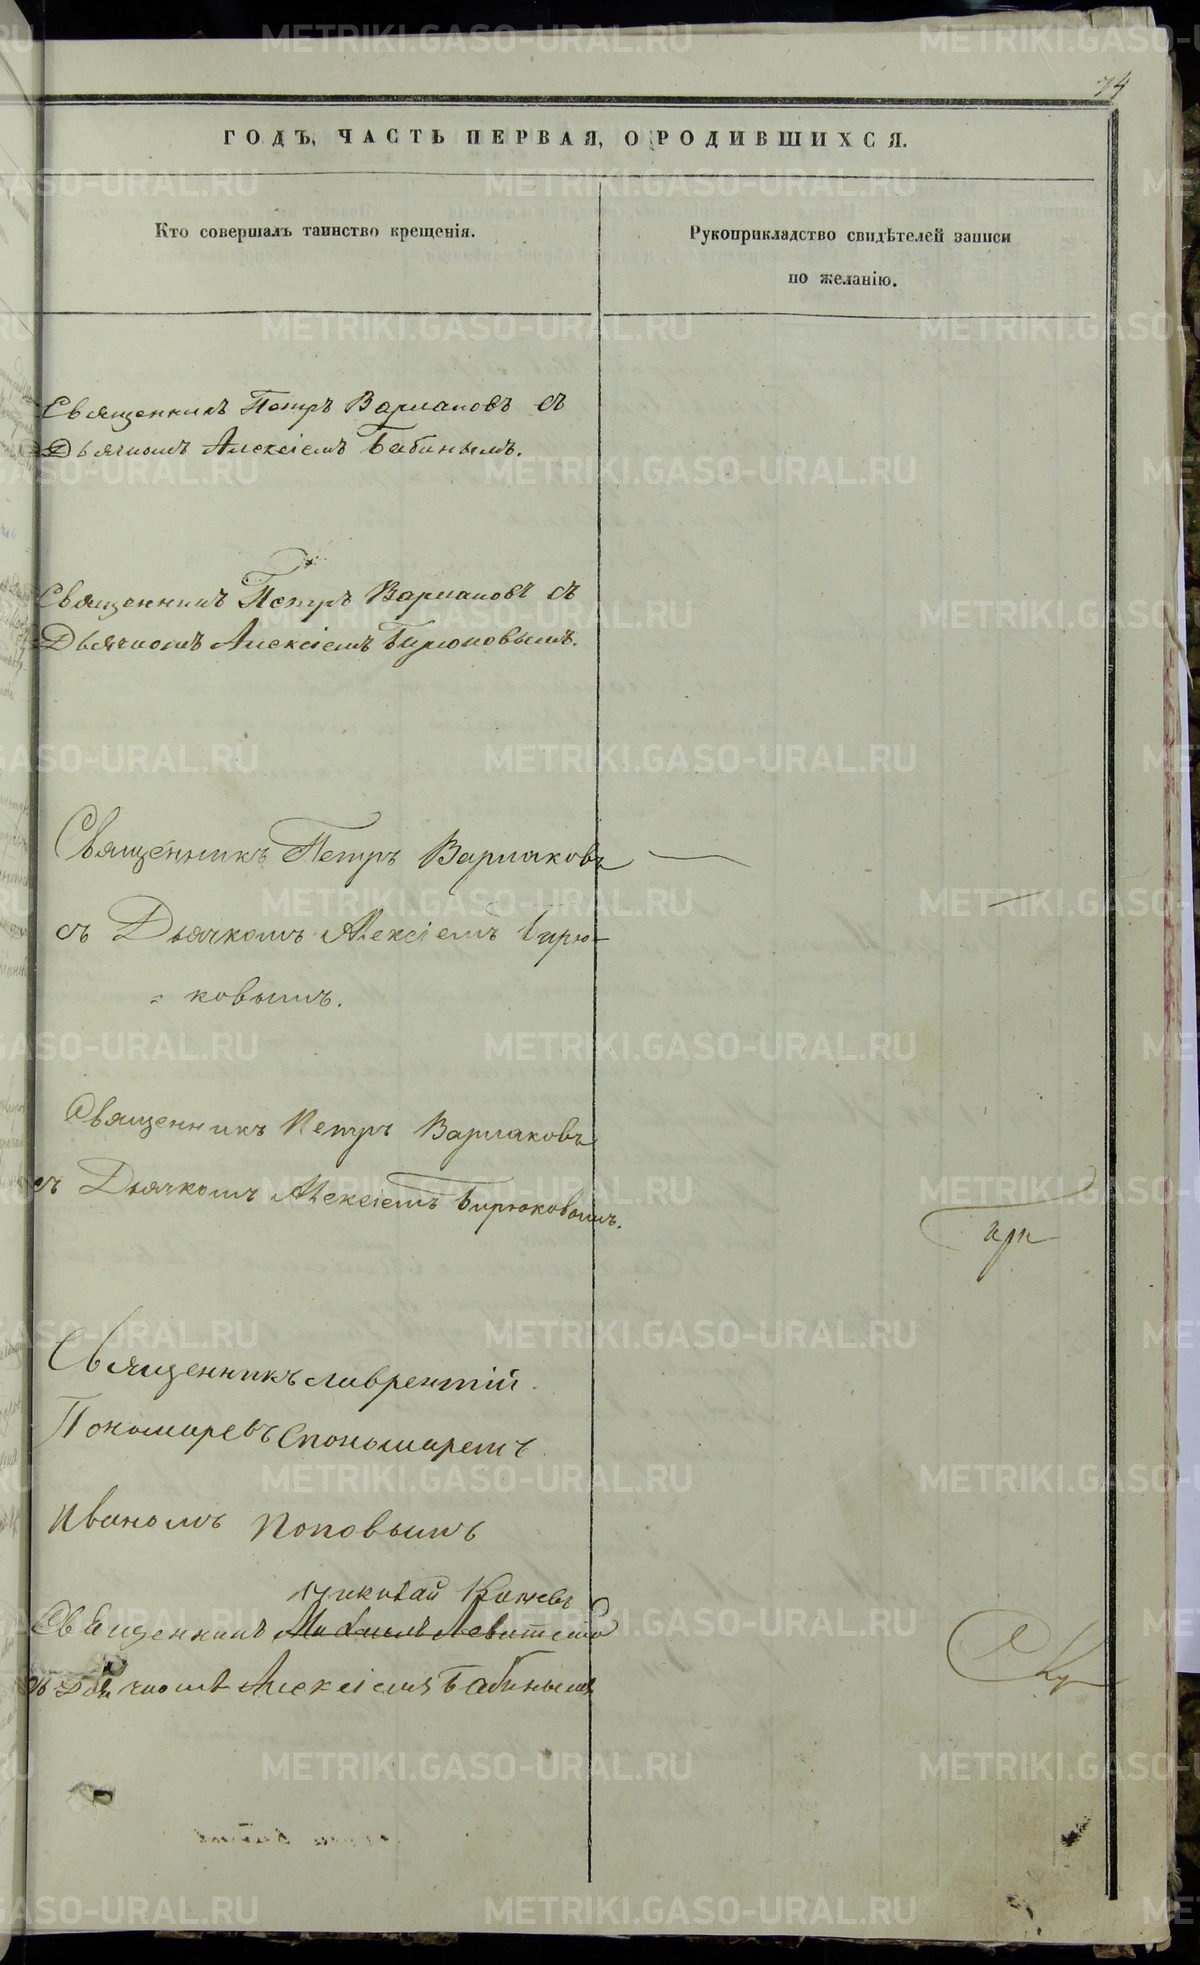 74
ГОДЪ, ЧАСТЬ ПЕРВАЯ, О РОДИВШИХСЯ.
Кто совершалъ таинство крещенія.
Рукоприкладство свидѣтелей записи
по желанію.
Священникъ Петръ Варлаковъ съ
Дьячкомъ Алексіемъ Бабинымъ.
Священникъ Петръ Варлаковъ съ
Дьячкомъ Алексіемъ Бирюковымъ.
Священникъ Петръ Варлаковъ
съ Дьячкомъ Алексіемъ Бирю-
ковымъ.
Священникъ Петръ Варлаковъ
съ Дьячкомъ Алексіемъ Бирюковымъ.
Священникъ Лаврентій
Пономаревъ спономаремъ
Иваномъ Поповымъ
Николай
Священникъ Михаилъ
съ Дьячкомъ Алексіемъ Бабинымъ
METRIKI.GASO-URAL.RU